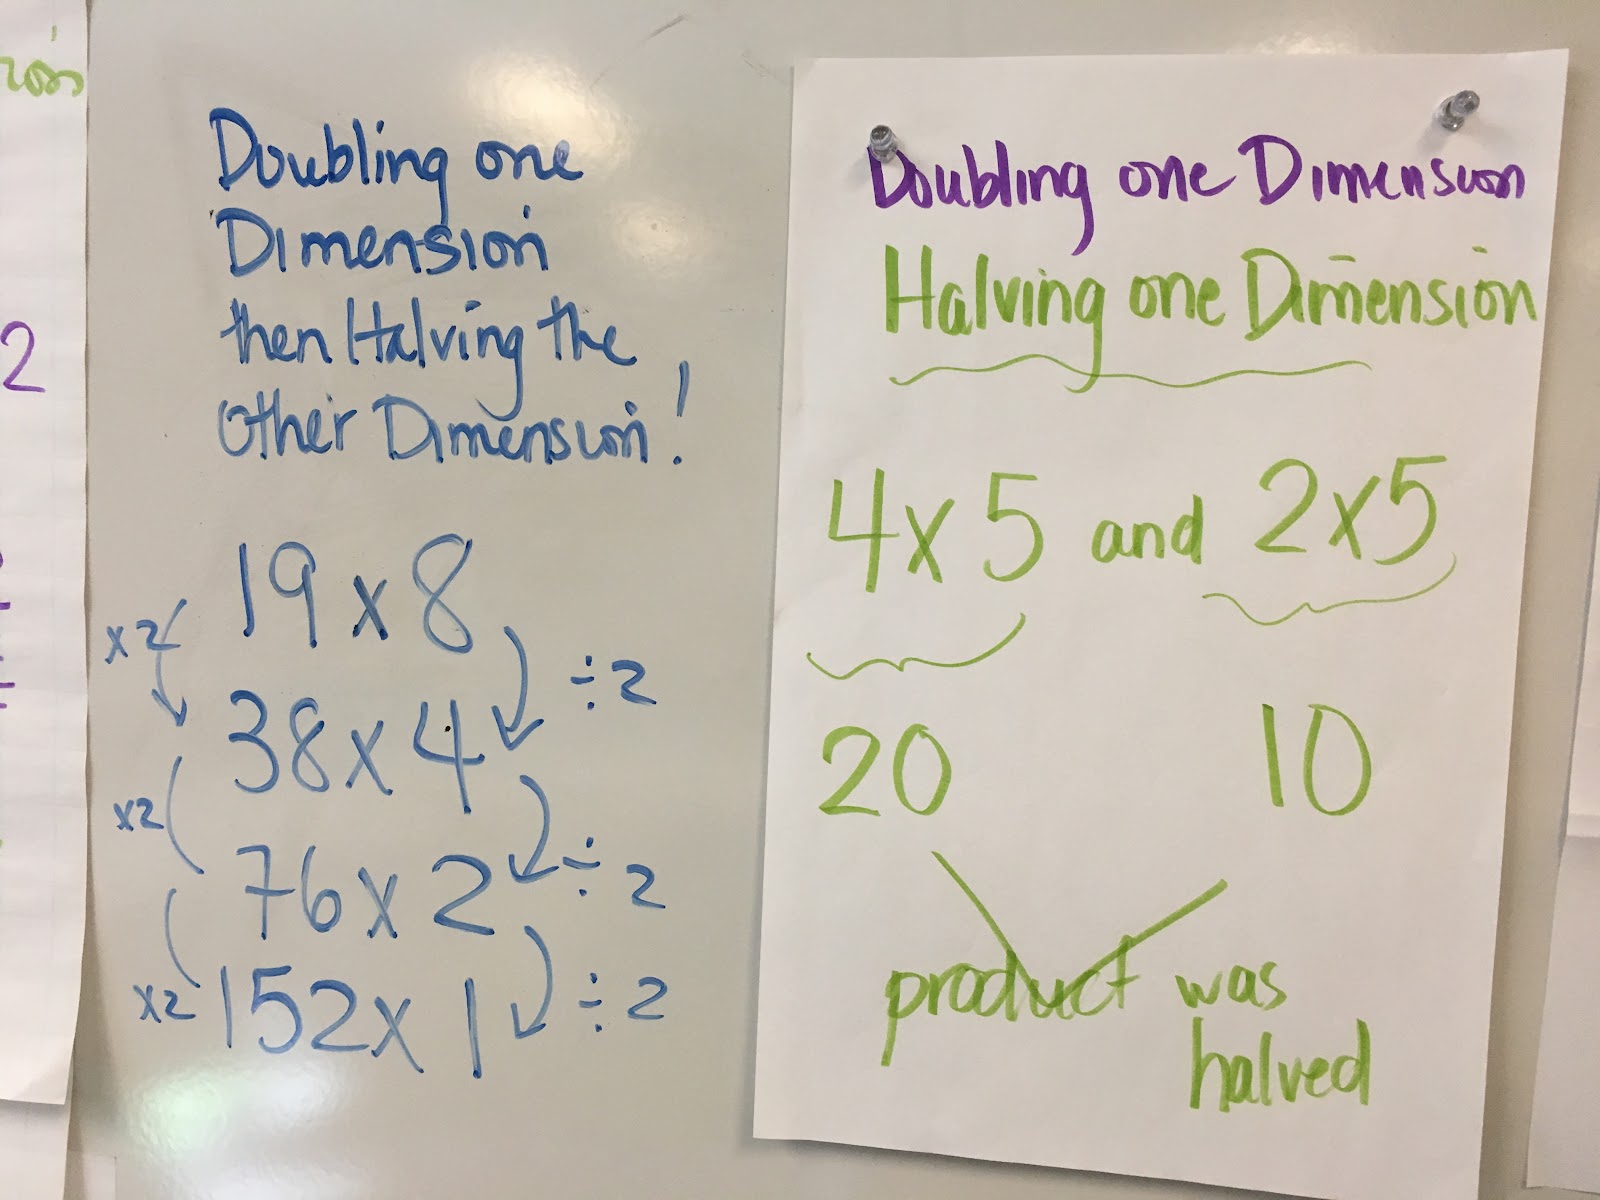 2
Doubling one
Dimension
then Halving the
Other Dimension!
19 x 8
x2
÷2
38 x 4
x2
÷ 2
76 x 2
x2
÷ 2
152 x 1
Doubling one Dimension
Halving one Dimension
4 x 5 and 2 x 5
20 10
product was
halved